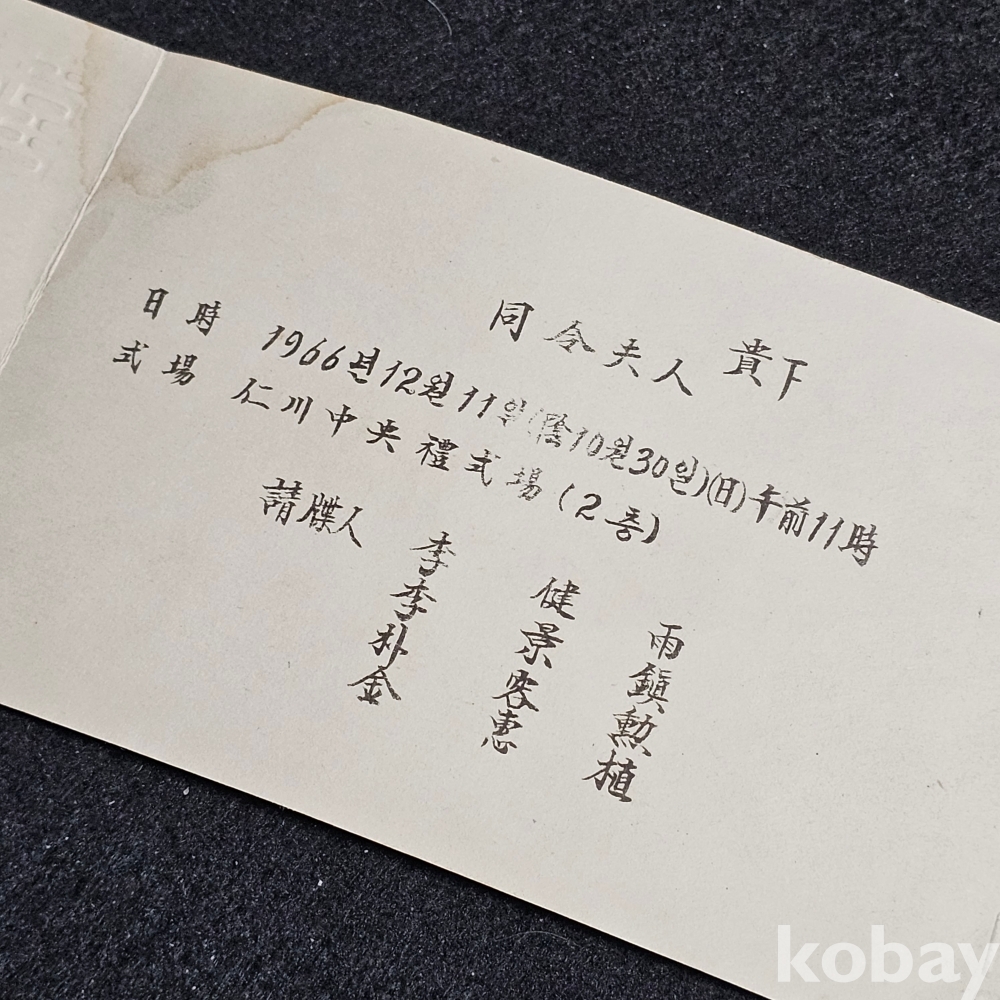 同令夫人 貴下
日時 1966년12월11일(陰10월30일)(日)午前11時
式場 仁川中央禮式場(2층)
請牒人 李健雨
李景鎭
朴容勲
金惠植
kobay